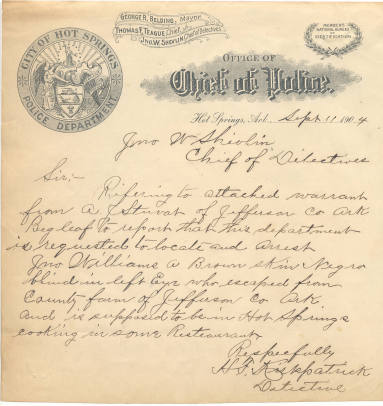 GEORGE R. BELDING, Mayor.
THOMAS F. TEAGUE, Chief.
JNO. W. SHOVLIN, Chief of Detectives
MEMBERS
NATIONAL BUREAU
OF
IDENTIFICATION
CITY OF HOT SPRINGS
POLICE DEPARTMENT
OFFICE OF
Chief of Police.
Hot Springs, Ark. Sept. 11 1904
Jno W Shovlin
Chief of Detectives
Sir:-
Refering to attached warrant
from A J Stuvat of Jefferson Co Ark
Beg leaf to report that this department
is requested to locate and arrest
Jno Williams a Brown skin Negro
blind in left Eye who escaped from
County farm of Jefferson Co Ark
and is supposed to be in Hot Springs
cooking in some Restaurant
Respecfully
H.T. Kirkpatrick
Detective